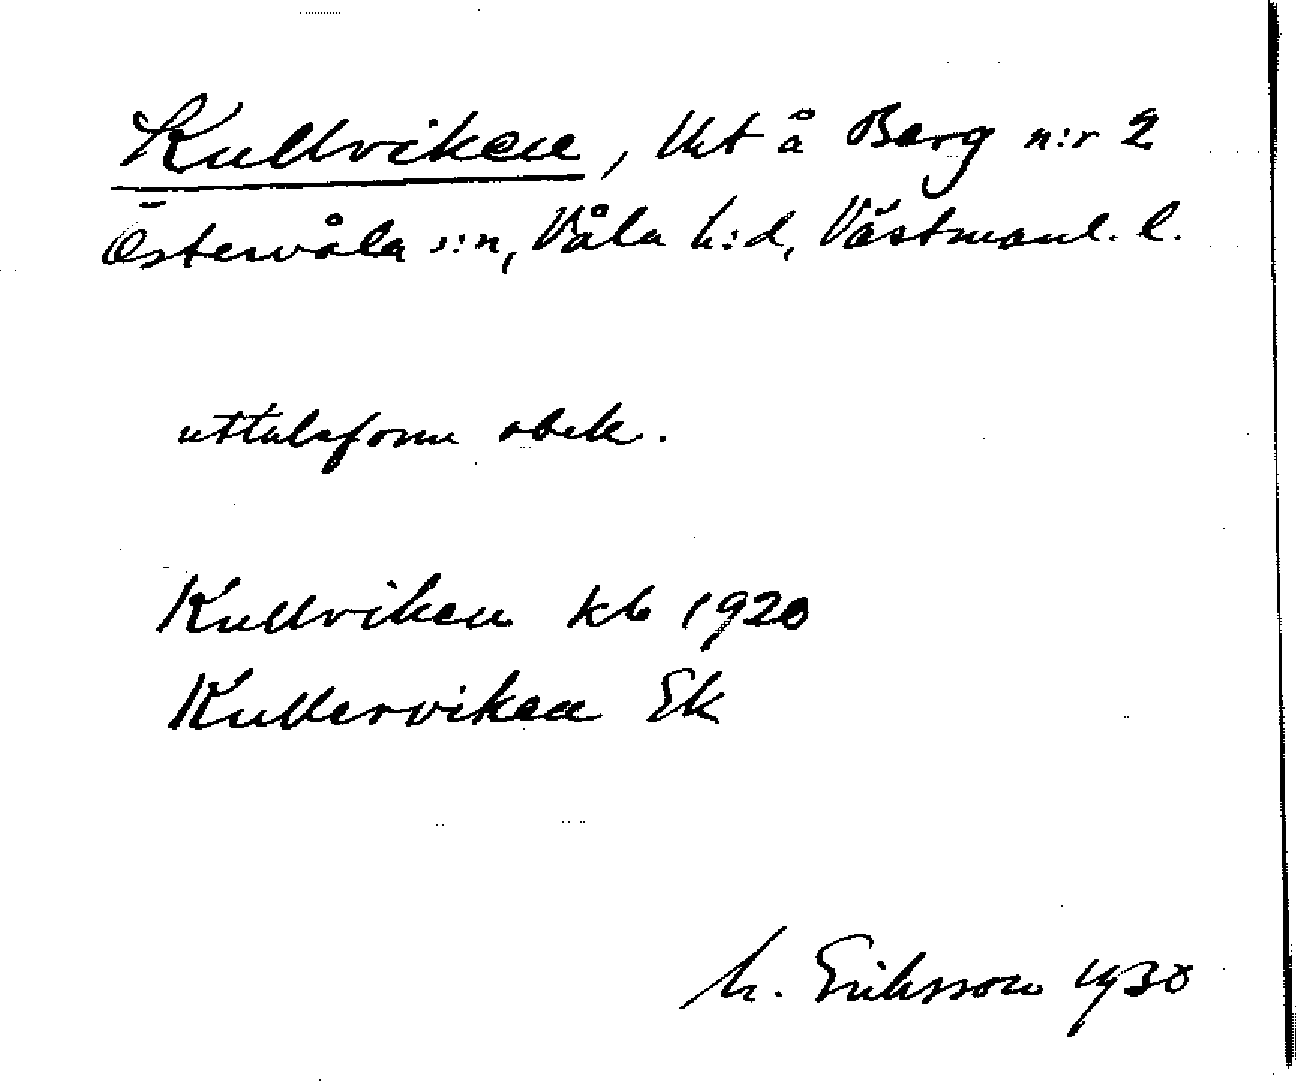 Kullviken, Uet å Berg n:r 2
Östervåla s:n, Våla h:d, Västmanl. l.
uttalsform obek.
Kullviken kb 1920
Kullerviken Ek
M. Eriksson 1930